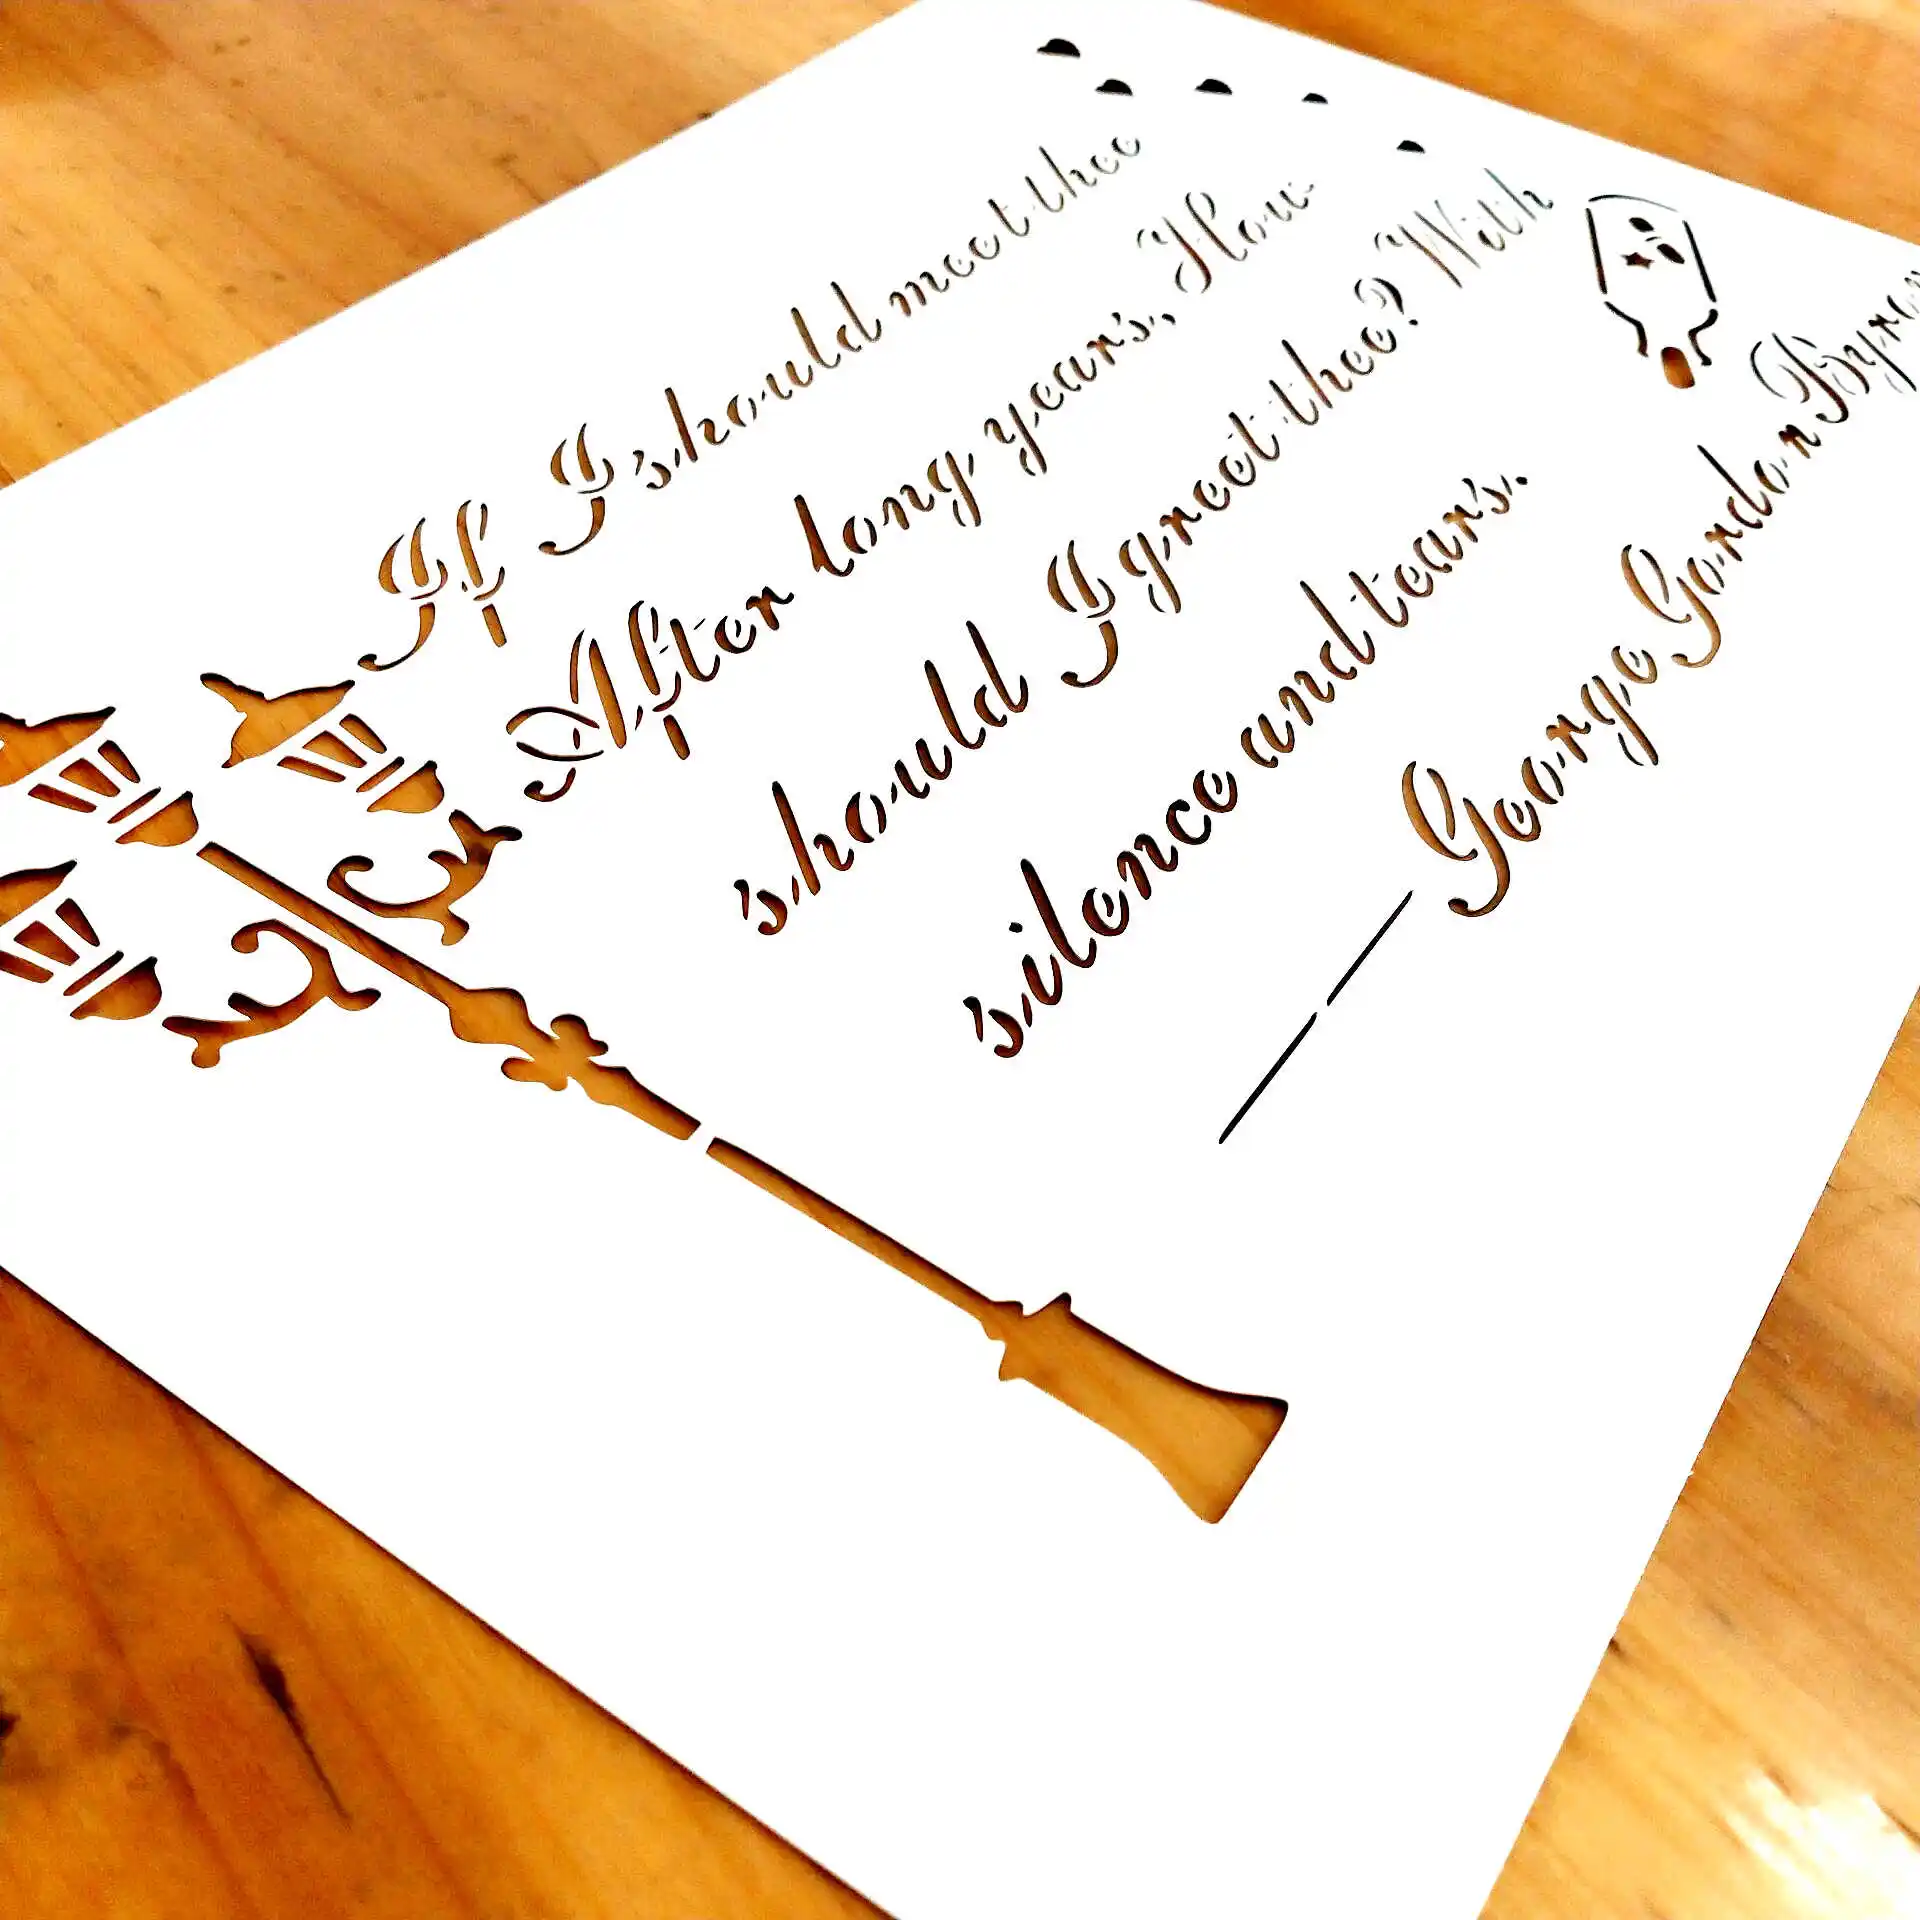 If I should meet thee
After long years. How
should I greet thee? With
silence and tears.
—George Gordon Byron